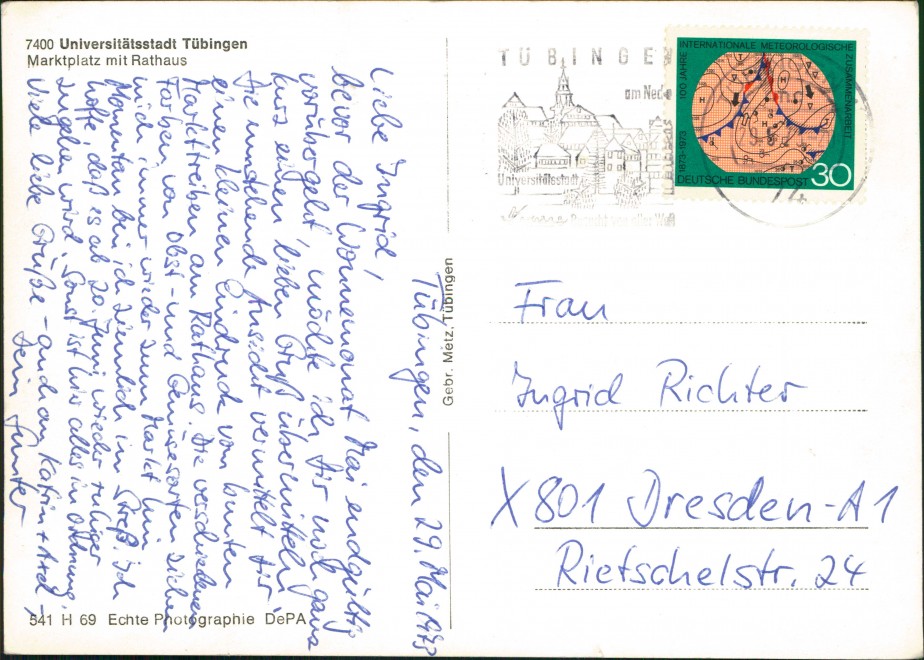 7400 Universitätsstadt Tübingen
Marktplatz mit Rathaus
Tübingen, den 29. Mai 1973
Liebe Ingrid,
bevor der Wonnemonat Mai endgültig
vorübergeht, möchte ich Dir noch ganz
kurz einen lieben Gruß übermitteln.
Die umstehende Ansicht vermittelt Dir
einen kleinen Eindruck vom bunten
Markttreiben am Rathaus. Die verschiedenen
Farben von Obst- und Gemüsesorten ziehen
mich immer wieder zum Markt hin.
Momentan bin ich ziemlich im Streß. Ich
hoffe, daß es ab 20. Juni wieder ruhiger
zugehen wird. Sonst ist hier alles in Ordnung.
Viele liebe Grüße - auch an Katrin + Axel,
Dein Gunter
541 H 69 Echte Photographie DePA
Gebr. Metz, Tübingen
TÜBINGEN
am Neckar
Universitätsstadt
100 JAHRE INTERNATIONALE METEOROLOGISCHE ZUSAMMENARBEIT
1873-1973
DEUTSCHE BUNDESPOST 30
Frau
Ingrid Richter
X 801 Dresden-A1
Rietschelstr. 24